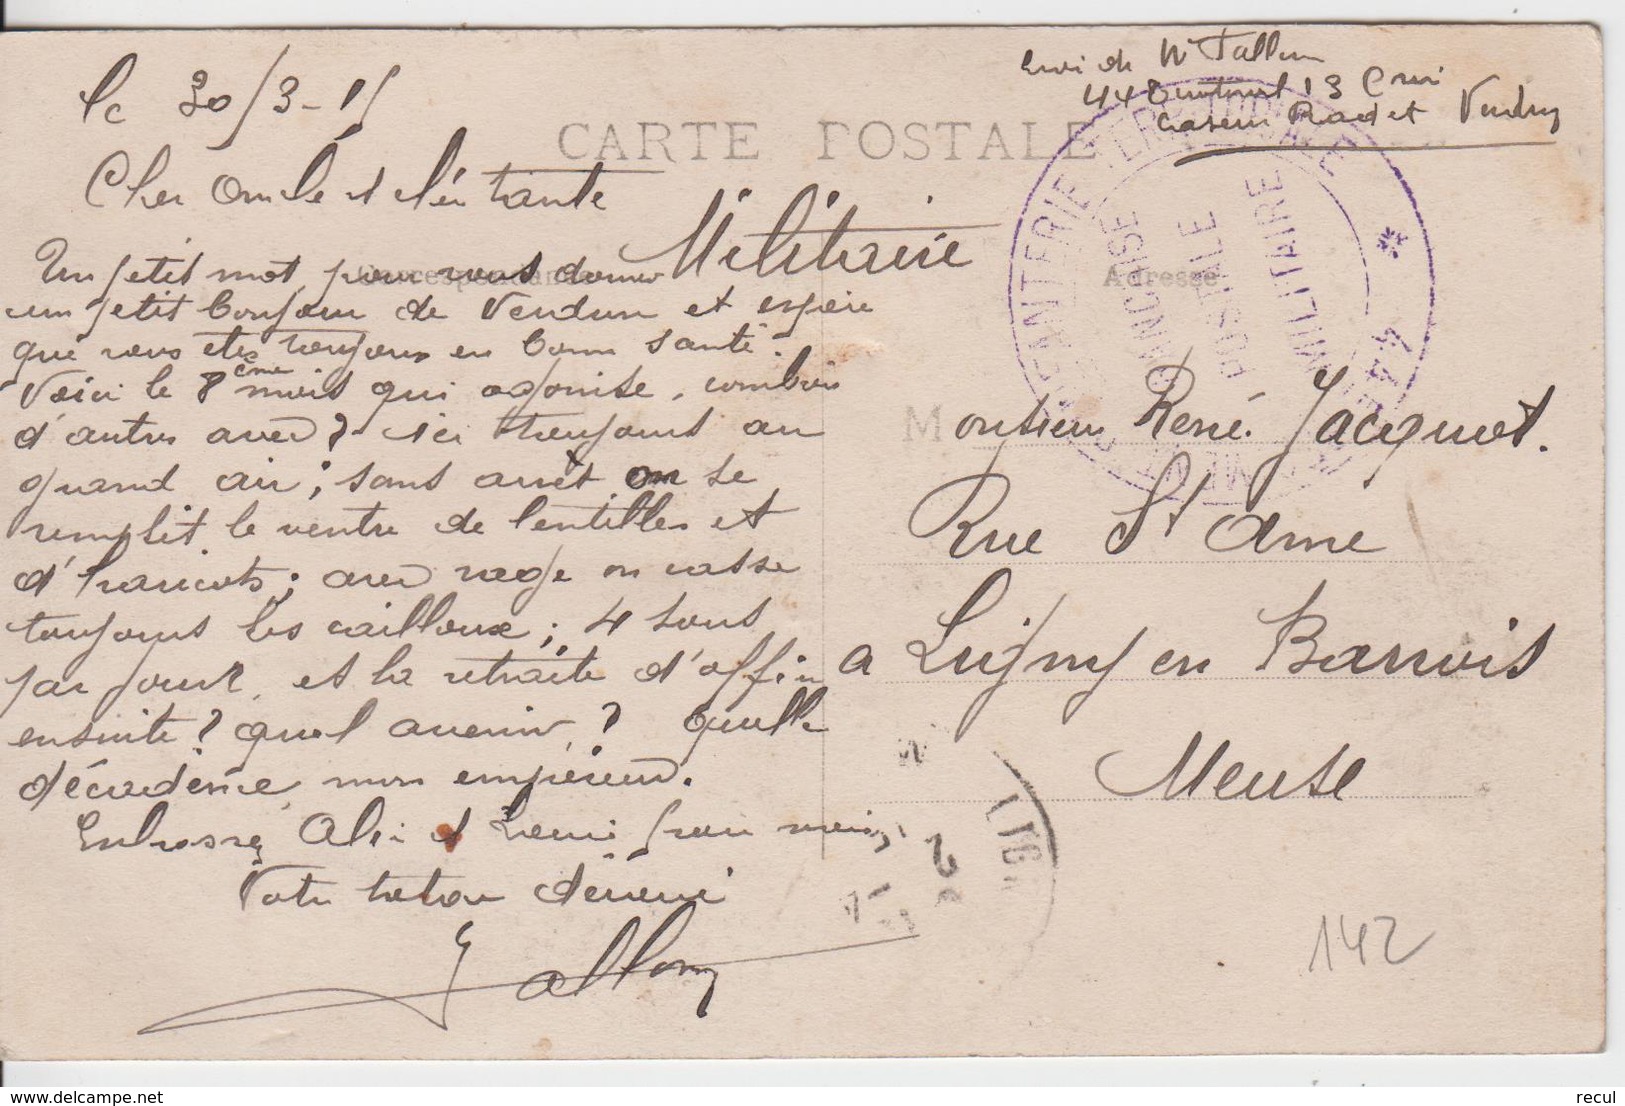 le 30/3-15
CARTE POSTALE
Envoi de Mr Tallon
44e Territorial 13e Cie
caserne Radet Verdun
Cher Oncle et chère tante
Militaire
Correspondance
Adresse
Un petit mot pour vous donner
un petit bonjour de Verdun et espère
que vous etes toujours en bonne santé.
Voici le 8ème mois qui agonise, combien
d'autres avec? ici toujours au
grand air; sans arrêt on se
remplit le ventre de lentilles et
d'haricots; avec rage on casse
toujours les cailloux; 4 sous
par jour, et la retraite d'office
ensuite? quel avenir? quelle
décadence mon empereur.
Embrassez et pour moi
Votre devoué
Tallon
Monsieur René Jacquot.
Rue St Ame
a Ligny en Barrois
Meuse
INFANTERIE TERRITORIALE
FRANCHISE
POSTALE
MILITAIRE
* 44e
142
recul